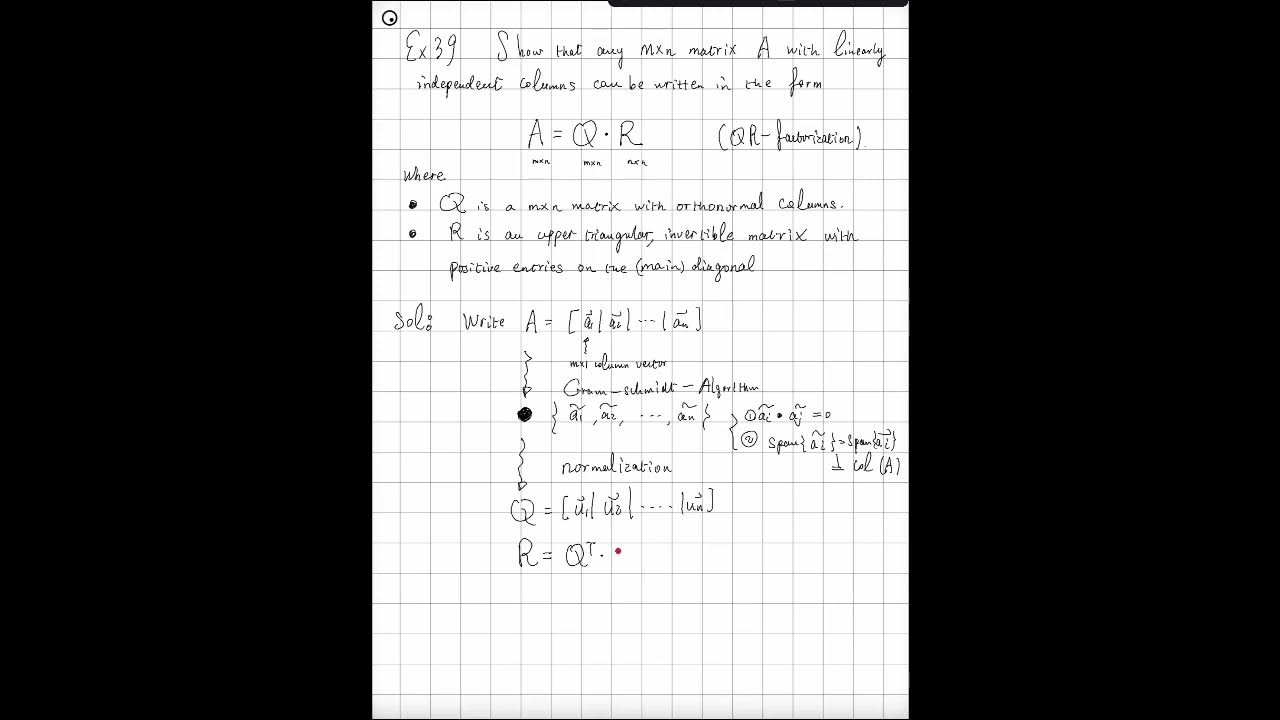 Ex 39 Show that any m×n matrix A with linearly
independent columns can be written in the form
A = Q · R (QR-factorization).
m×n m×n n×n
where
• Q is a m×n matrix with orthonormal columns.
• R is an upper triangular, invertible matrix with
positive entries on the (main) diagonal
Sol: Write A = [a⃗₁| a⃗₂| ··· | a⃗ₙ]
m×1 column vector
Gram-schmidt-Algorithm
{ ã₁, ã₂, ..., ãₙ } ① ãᵢ • ãⱼ = 0
② span{ãᵢ} = span{a⃗ᵢ}
⊥ col (A)
normalization
Q = [u⃗₁| u⃗₂| ···· |u⃗ₙ]
R = Qᵀ ·